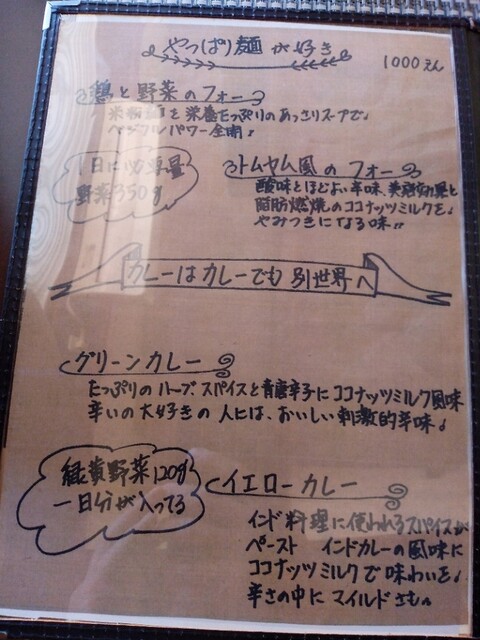 やっぱり麺が好き
1000えん
鶏と野菜のフォー
米粉麺と栄養たっぷりのあっさりスープで♪
ベジタブルパワー全開♪
1日に必要量
野菜350g
トムヤム風のフォー
酸味とほどよい辛味、美容効果と
脂肪燃焼のココナッツミルクを♪
やみつきになる味!!
カレーはカレーでも別世界へ
グリーンカレー
たっぷりのハーブ、スパイスと青唐辛子にココナッツミルク風味
辛いの大好きの人には、おいしい刺激的辛味♪
緑黄野菜120g
一日分が入ってる
イエローカレー
インド料理に使われるスパイスが
ペースト インドカレーの風味に
ココナッツミルクで味わいを♪
辛さの中にマイルドさも。